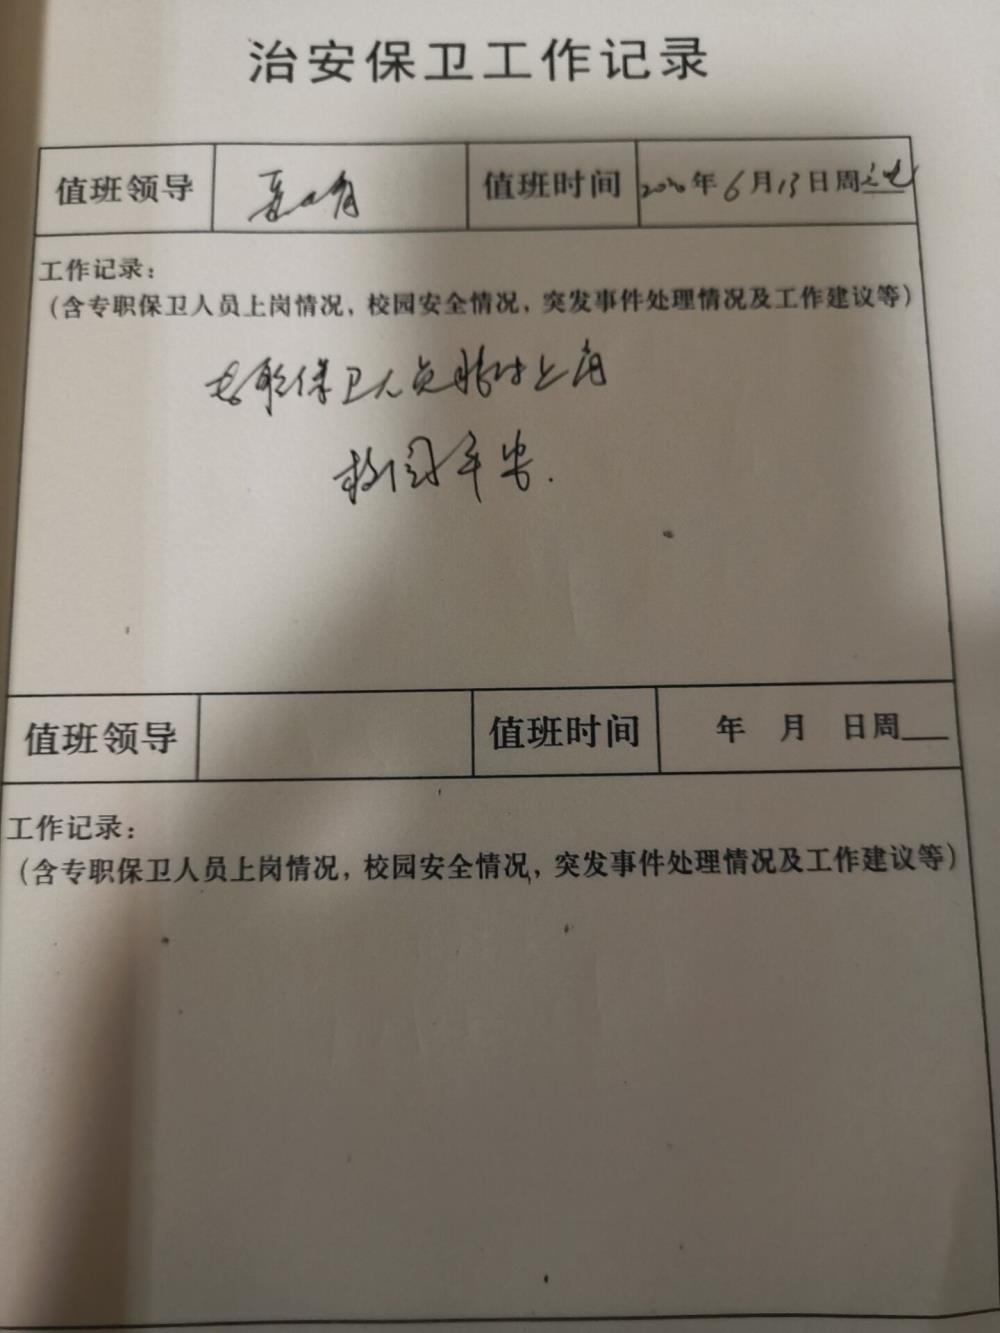 治安保卫工作记录
值班领导 值班时间 2020年6月13日周
工作记录：
（含专职保卫人员上岗情况，校园安全情况，突发事件处理情况及工作建议等）
专职保卫人员按时上岗
校园平安.
值班领导 值班时间 年 月 日周
工作记录：
（含专职保卫人员上岗情况，校园安全情况，突发事件处理情况及工作建议等）